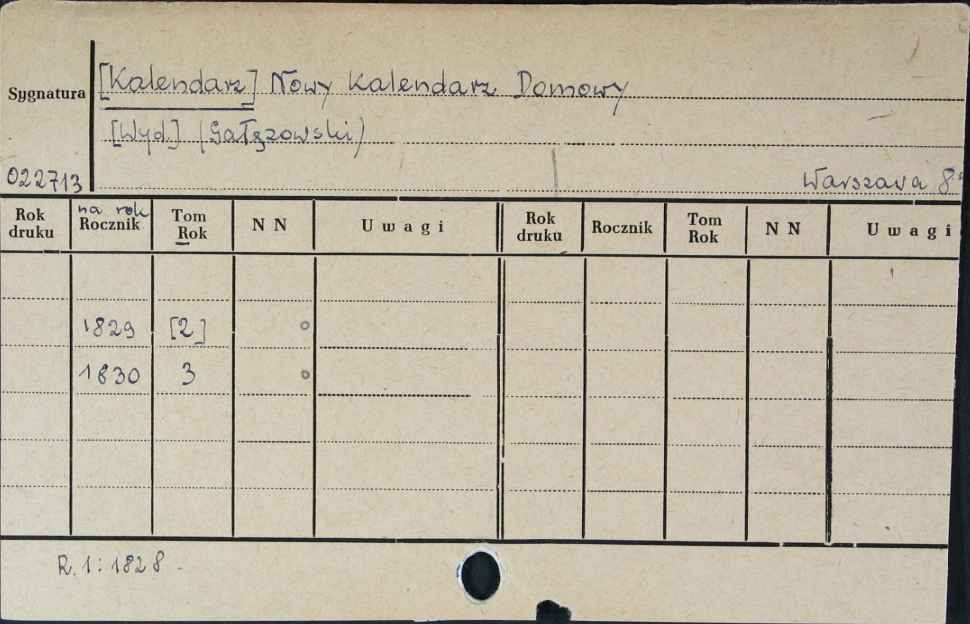 Sygnatura [Kalendarz] Nowy Kalendarz Domowy
[Wyd.] (Gałęzowski)
022713 Warszawa 8°
Rok druku na rok Rocznik Tom Rok NN Uwagi Rok druku Rocznik Tom Rok NN Uwagi
1829 [2] o
1830 3 o
R. 1: 1828 -